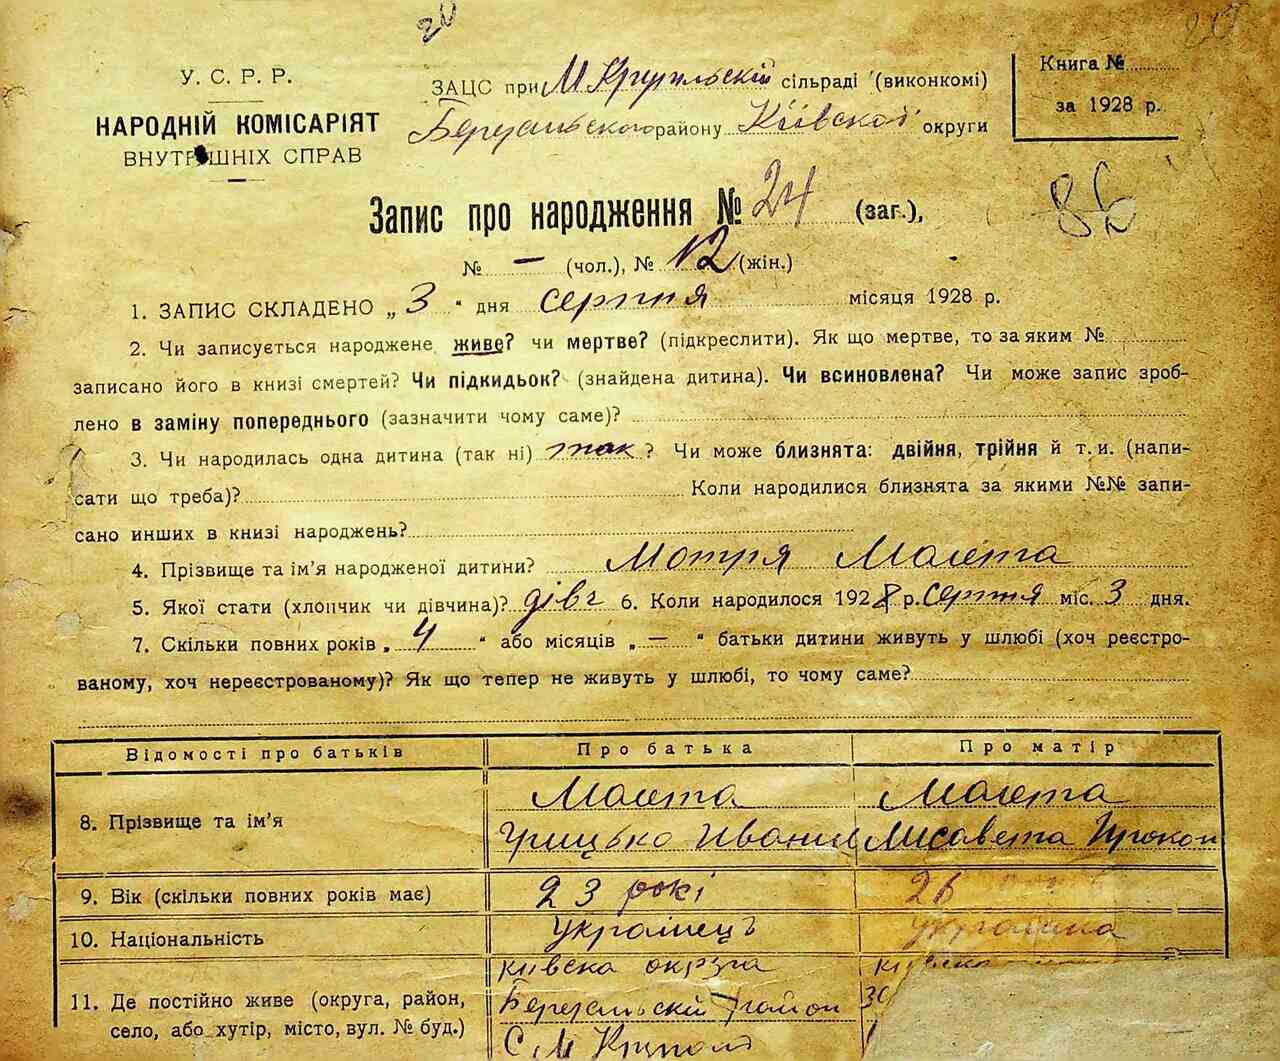 20
20
У. С. Р. Р.
НАРОДНІЙ КОМІСАРІЯТ
ВНУТРІШНІХ СПРАВ
ЗАЦС при М Крупільскій сільраді (виконкомі)
району Київской округи
Книга №
за 1928 р.
86
Запис про народження № 24 (заг.),
№ — (чол.), № 12 (жін.)
1. ЗАПИС СКЛАДЕНО „ 3 “ дня серпня місяця 1928 р.
2. Чи записується народжене живе? чи мертве? (підкреслити). Як що мертве, то за яким №
записано його в книзі смертей? Чи підкидьок? (знайдена дитина). Чи всиновлена? Чи може запис зроб-
лено в заміну попереднього (зазначити чому саме)?
3. Чи народилась одна дитина (так ні) так ? Чи може близнята: двійня, трійня й т. и. (напи-
сати що треба)? Коли народилися близнята за якими №№ запи-
сано инших в книзі народжень?
4. Прізвище та ім'я народженої дитини? Мотря Малета
5. Якої стати (хлопчик чи дівчина)? дівч 6. Коли народилося 1928 р. серпня міс. 3 дня.
7. Скільки повних років „ 4 “ або місяців „ — “ батьки дитини живуть у шлюбі (хоч реєстро-
ваному, хоч нереєстрованому)? Як що тепер не живуть у шлюбі, то чому саме?
Відомості про батьків Про батька Про матір
8. Прізвище та ім'я Малета Малета
Грицько Иванил Лисавета Прокоп
9. Вік (скільки повних років має) 23 рокі 26
10. Національність Українець Украінка
11. Де постійно живе (округа, район,
село, або хутір, місто, вул. № буд.)
київска округа
район
С М Круполь